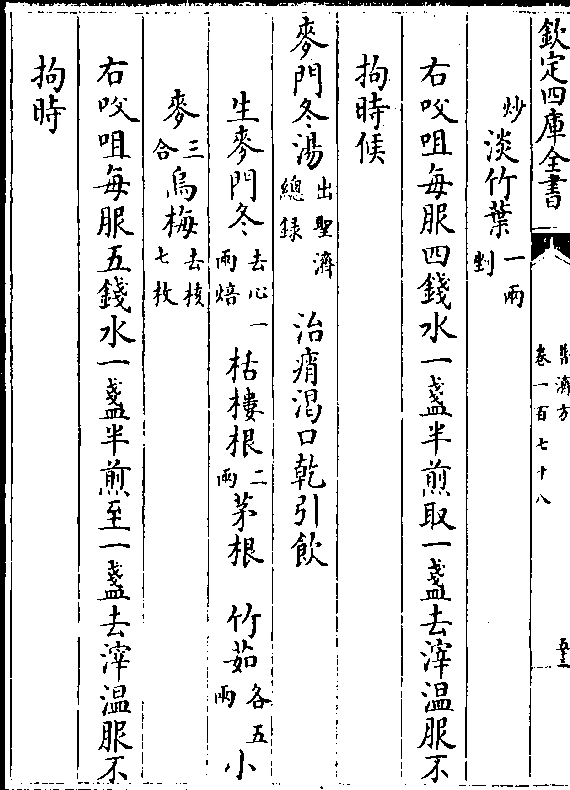 欽定四庫全書
普濟方
卷一百七十八
五十三
炒淡竹葉一兩剉
右㕮咀每服四錢水一盞半煎取一盞去滓温服不
拘時候
麥門冬湯出聖濟總録 治痟渴口乾引飲
生麥門冬去心一兩焙 枯樓根二兩茅根 竹茹各五兩小
麥三合烏梅去核七枚
右㕮咀每服五錢水一盞半煎至一盞去滓温服不
拘時